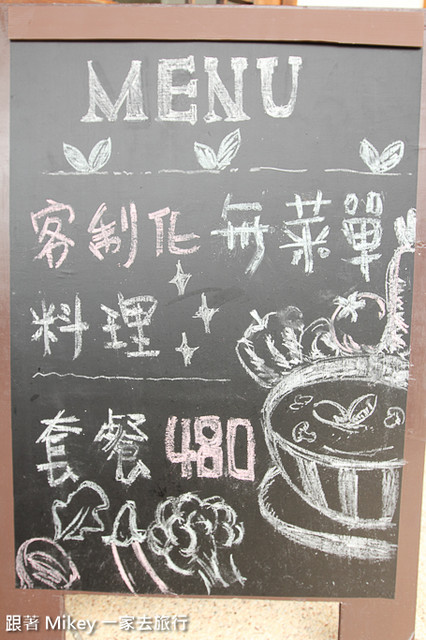 MENU
客制化無菜單
料理
套餐480
跟著 Mikey 一家去旅行